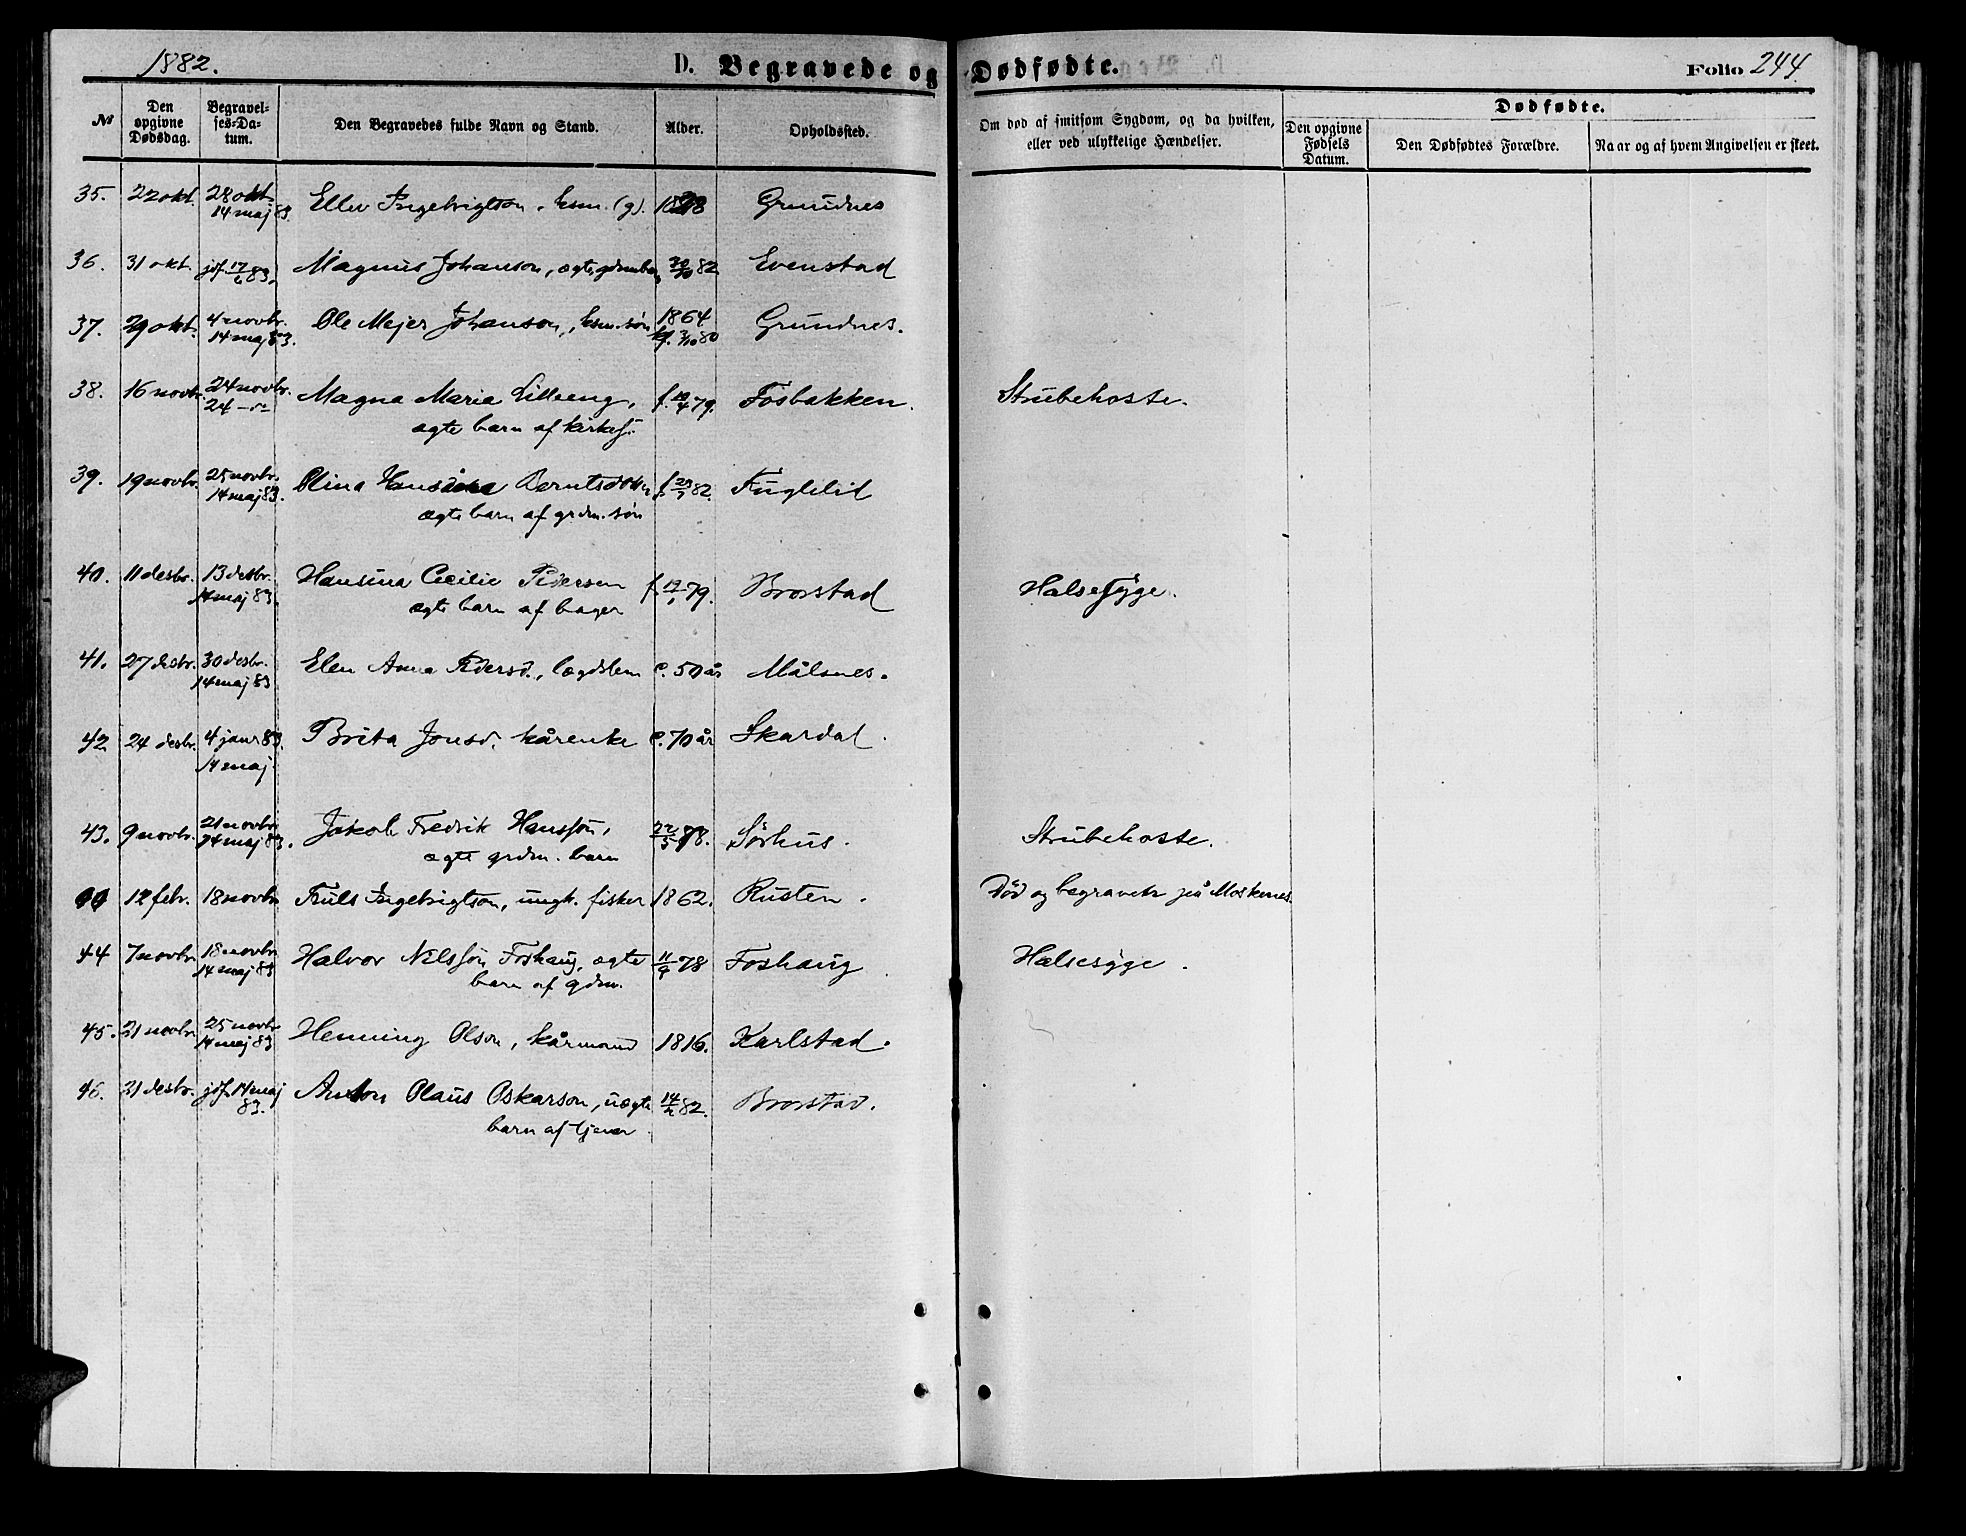 1882.
D. Begravede og Dødfødte.
Folio 244.
№
Den opgivne Dødsdag.
Begravelses-Datum.
Den Begravedes fulde Navn og Stand.
Alder.
Opholdssted.
Om død af smitsom Sygdom, og da hvilken, eller ved ulykkelige Hændelser.
Dødfødte.
Den opgivne Fødsels Datum.
Den Dødfødtes Forældre.
Naar og af hvem Angivelsen er skeet.
35. 22 okt. 28 okt. Ellev Ingebrigtson, hsm. (g). Grundnes
14 maj 83.
36. 31 okt. jdf 17/6 83. Magnus Johanson, ægte gdmbarn 30/10 82 Evenstad
37. 29 okt. 4 novbr. Ole Mejer Johanson, hsm. søn 1864 Grundnes.
14 maj 83. kf. 3/10 80
38. 16 novbr. 24 novbr. Magna Maria Lilleeng, f. 19/4 79. Fosbakken. Strubehoste.
24 –"–
ægte barn af kirkesj.
39. 19 novbr. 25 novbr. Olina Hansine Berntsdatter f. 82. Fuglelid
14 maj 83.
ægte barn af grdm. søn
40. 11 desbr. 13 desbr. Hansina Cecilie Pedersen f. 19/1 79. Brorstad Halsesyge.
14 maj 83.
ægte barn af bager
41. 27 desbr. 30 desbr. Elen Anna Pedersd., lægdslem c. 50 år Målsnes.
14 maj 83
42 24 desbr. 4 janr 83. Brita Jonsd. kårenke c. 70 år Skardal.
14 maj
43. 9 novbr. 21 novbr. Jakob Fredrik Hansson, 22/5 78. Sørhus. Strubehoste.
14 maj 83.
ægte grdm. barn
12 febr. 18 novbr. Truls Ingebrigtson, ungk. fisker 1862. Rusten. Død og begravet på Moskenes.
44 7 novbr. 18 novbr. Halvor Nilsson Foshaug, ægte 11/9 78 Foshaug Halsesyge.
14 maj 83
barn af gdm.
45. 21 novbr. 25 novbr. Henning Olson, kårmand 1816. Karlstad.
14 maj 83
46. 21 desbr. jdf. 14 maj Anton Olaus Oskarson, uægte 82. Brorstad.
83.
barn af tjener